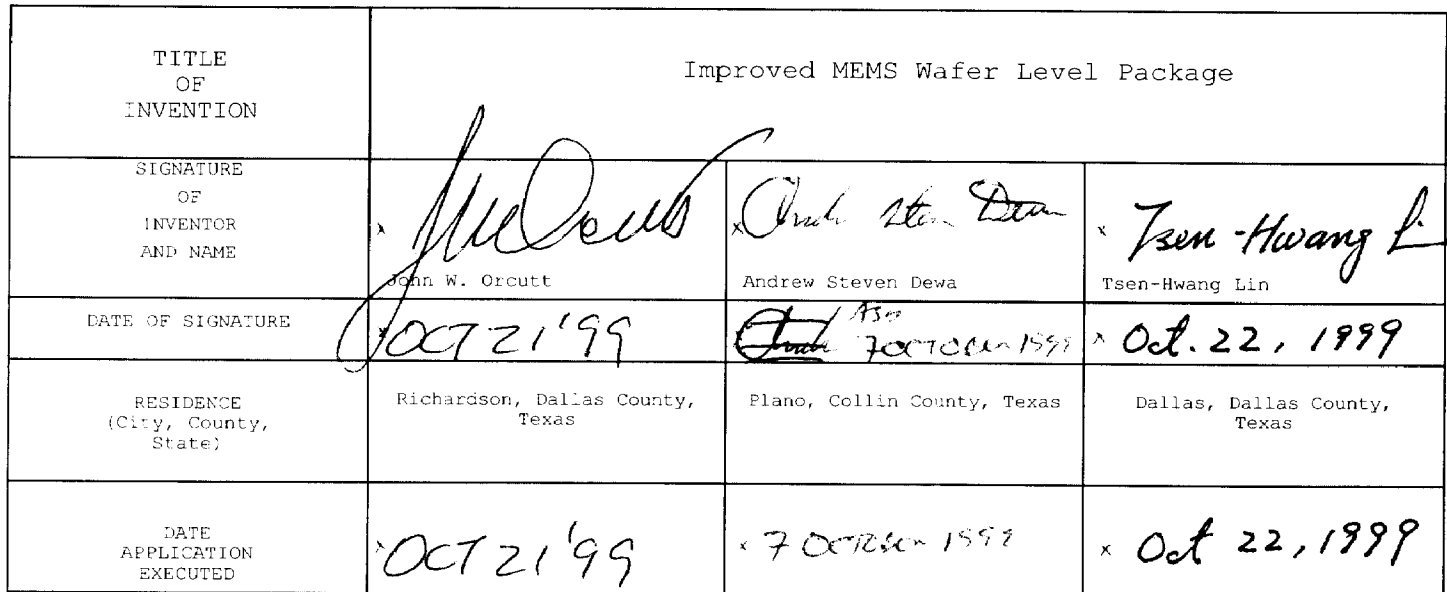 TITLE
OF
INVENTION
Improved MEMS Wafer Level Package
SIGNATURE
OF
INVENTOR
AND NAME
x
x
x Tsen-Hwang Lin
John W. Orcutt
Andrew Steven Dewa
Tsen-Hwang Lin
DATE OF SIGNATURE
x OCT 21 '99
7 OCTOBER 1999
x Oct. 22, 1999
RESIDENCE
(City, County,
State)
Richardson, Dallas County,
Texas
Plano, Collin County, Texas
Dallas, Dallas County,
Texas
DATE
APPLICATION
EXECUTED
x OCT 21 '99
x 7 OCTOBER 1999
x Oct 22, 1999